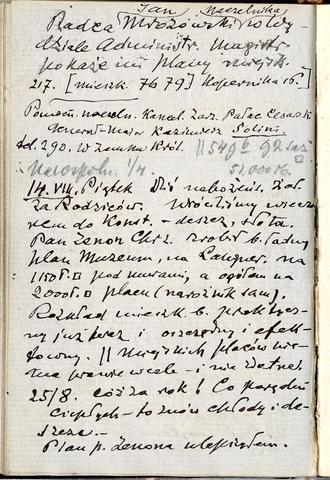 Jan Naczelnika
Radca Mrozowski po Wy-
dziale Administr. Magistr.
pokaże mi plany miejsk.
217. [mieszk. 76 79] Kopernika 16.]
Pomocn. naczeln. Kancel. Zarz. Pałac Cesarsk.
General-Major Kazimierz
tel. 290. w Zamku Król. || 549 6
1/4. 51.000 rb.
14.VII. Piątek Dziś nabożeń. żał.
za Rodziców. Wróciliśmy wieczo-
rem do Konst. - deszcz, słota.
Pan Zenon Chrz. zrobił b. ładny
plan Muzeum, na na
1150 ł. □ pod murami, a ogółem na
2000 ł. □ placu (narożnik sam).
Rozkład mieszk. b. praktycz-
ny już teraz i oszczędny i efek-
towny. || Miejskich placów nie-
ma prawie wcale - i nie
25/8. cóż za rok! Co parę dni
ciepłych - to znów chłody i de-
szcze. -
Plan p. Zenona ulepszyłem.